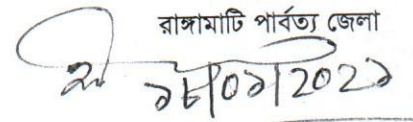 রাঙ্গামাটি পার্বত্য জেলা
১৮/০১/202১